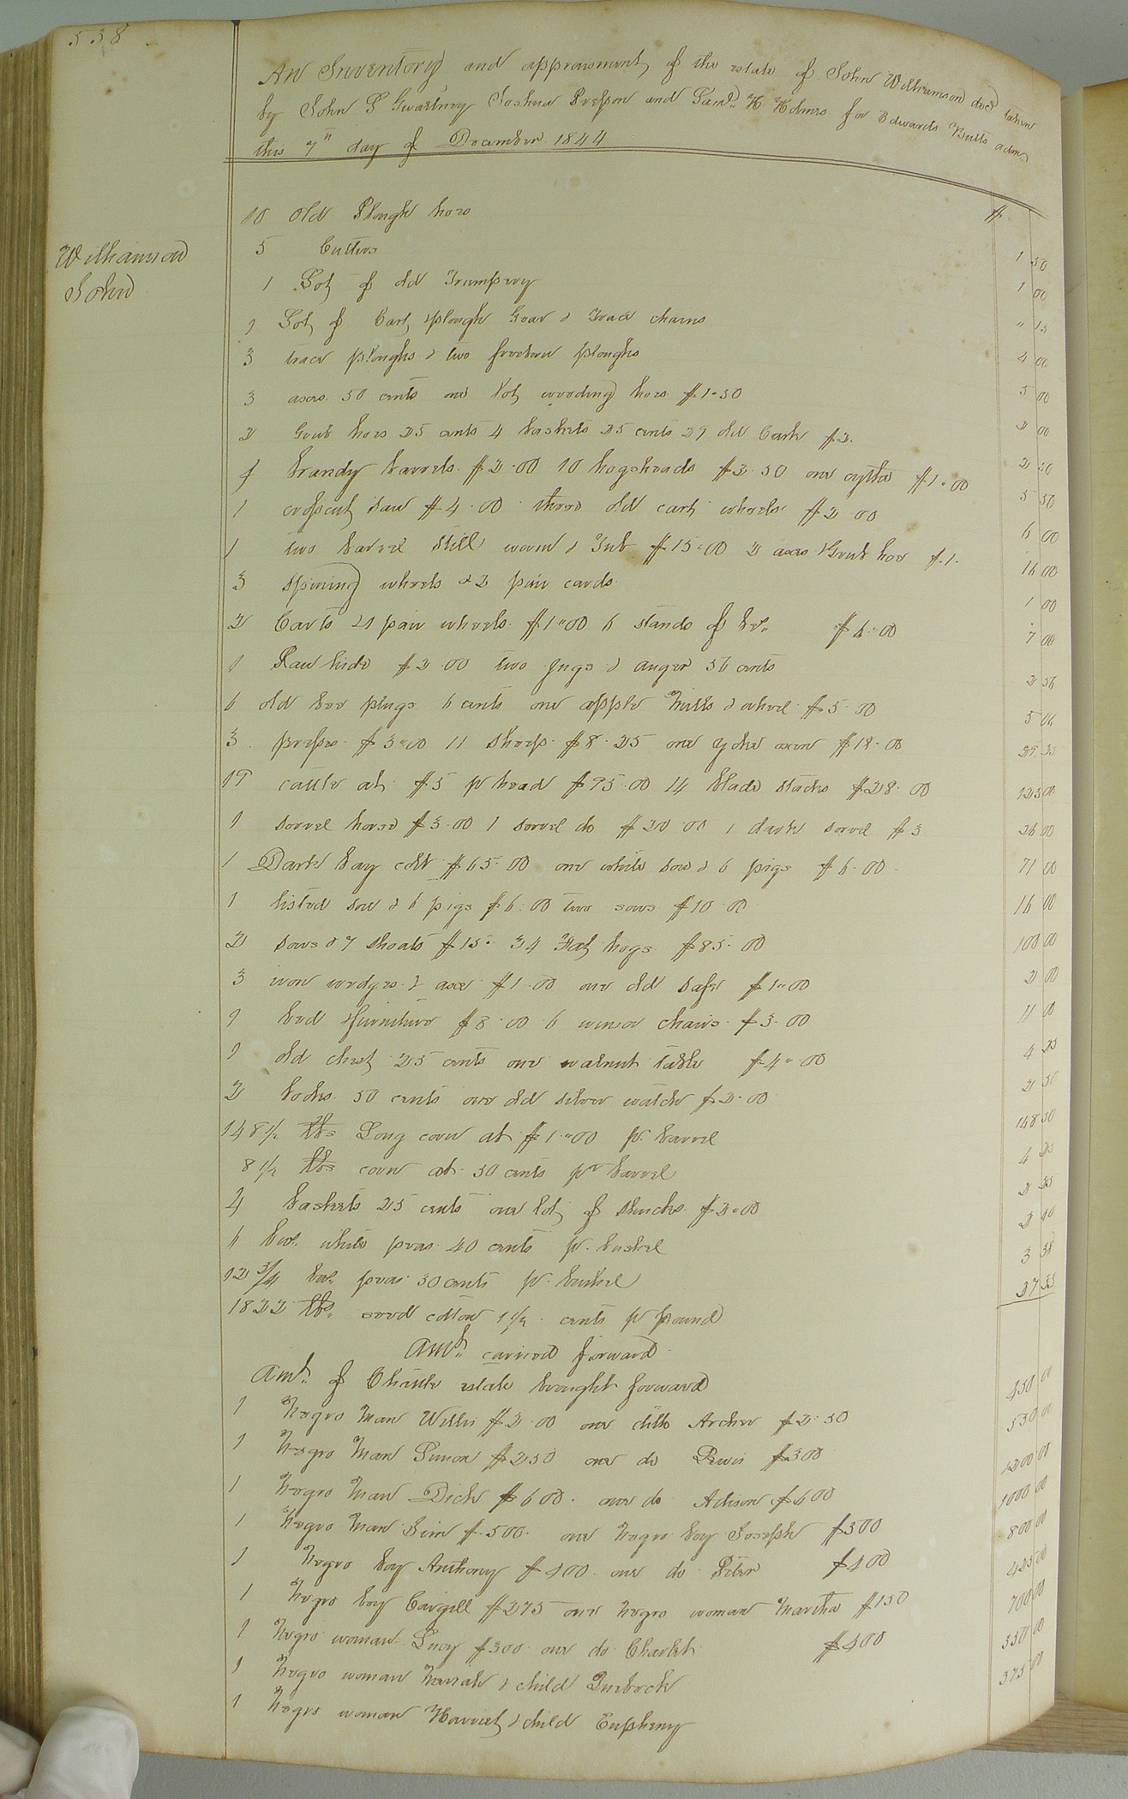 538
An Inventory and appraisment of the estate of John Williamson decd taken
by John G Gwaltney Joshua Presson and Saml H Holmes for Edwards Butts adm
this 7th day of December 1844
Williamson
John
10 Old Plough hoes $ 1 50
5 Cutters 1 00
1 Lot of old Trumpery " 15
1 Lot of Cart, plough Gear & Trace chains 4 00
3 trace ploughs & two ploughs 5 00
3 axes 50 cents one lot weeding hoes $1.50 2 00
2 Grub hoes 25 cents 4 baskets 25 cents old Cask $2. 2 50
brandy barrels $2.00 10 hogsheads $2.50 one $1.00 5 50
1 crosscut saw $4.00 three old cart wheels $2 00 6 00
1 two barrel still worm & Tub $15.00 2 axes Grub hoe $1. 16 00
3 spining wheels & 2 pair cards 1 00
2 Carts & 1 pair wheels $1.00 6 stands of $6.00 7 00
1 Raw hide $2.00 two jugs & auger 56 cents 2 56
6 old plugs 6 cents one apple Mill & wheel $5.00 5 06
3 $3.00 11 sheep $8.25 one yoke oxen $18.00 29 25
19 cattle at $5 pr head $95.00 14 blade stacks $28.00 123 00
1 sorrel horse $3.00 1 sorrel do $20.00 1 dark sorrel $3 26 00
1 Dark bay colt $65.00 one white sow & 6 pigs $6.00 71 00
1 listed sow & 6 pigs $6.00 two sows $10.00 16 00
2 sows & 7 shoats $15. 34 Fat hogs $85.00 100 00
3 iron wedges & axe $1.00 one old safe $1.00 2 00
1 bed & furniture $8.00 6 winsor chairs $3.00 11 00
1 old chest 25 cents one walnut table $4.00 4 25
2 50 cents one old silver watch $2.00 2 50
148 1/2 bbs Long corn at $1.00 pr barrel 148 50
8 1/2 bbs corn at 50 cents pr barrel 4 25
4 baskets 25 cents one lot of shucks $2.00 2 25
6 bus. white peas 40 cents pr. bushel 2 40
12 3/4 bus. peas 30 cents pr. bushel 3 38
1822 lbs. seed cotton 1 1/2 cents pr pound 27 33
amt. carried forward
Amt. of Chattle estate brought forward
1 Negro Man Willis $2.00 one ditto Archer $2.50 450 00
1 Negro Man Simon $250 one do $300 550 00
1 Negro Man Dick $600. one do $600 1200 00
1 Negro Man $500. one Negro boy Joseph $500 1000 00
1 Negro boy Anthony $400 one do Peter $400 800 00
1 Negro boy Cargill $275 one Negro woman Martha $150 425 00
1 Negro woman Lucy $300 one do Charlott $400 700 00
1 Negro woman & child 550 00
1 Negro woman Harriet & child Eupheny 575 00